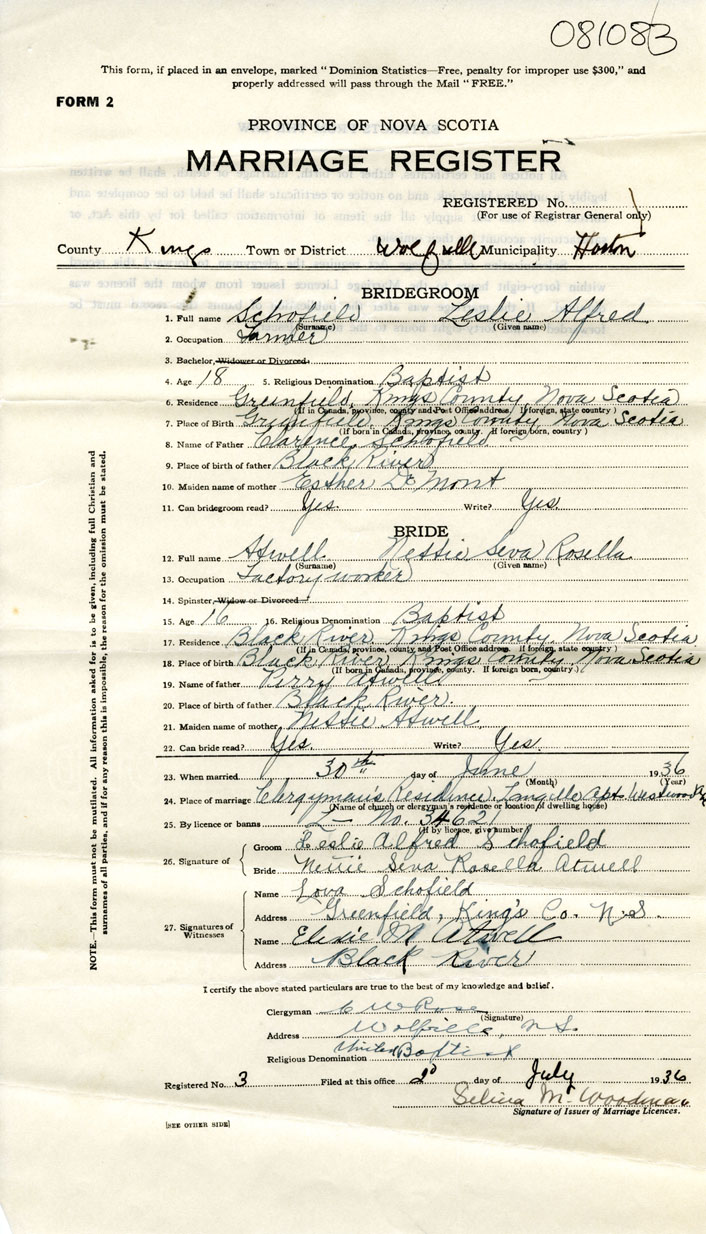 081083
This form, if placed in an envelope, marked "Dominion Statistics—Free, penalty for improper use $300," and
properly addressed will pass through the Mail "FREE."
FORM 2
PROVINCE OF NOVA SCOTIA
MARRIAGE REGISTER
REGISTERED No.
(For use of Registrar General only)
County Kings Town or District Wolfville Municipality Horton
BRIDEGROOM
1. Full name Schofield Leslie Alfred
(Surname) (Given name)
2. Occupation Farmer
3. Bachelor, Widower or Divorced
4. Age 18 5. Religious Denomination Baptist
6. Residence Greenfield, Kings County, Nova Scotia
(If in Canada, province, county and Post Office address / If foreign, state country)
7. Place of Birth Greenfield, Kings County Nova Scotia
(If born in Canada, province, county. If foreign born, country)
8. Name of Father Clarence Schofield
9. Place of birth of father Black River
10. Maiden name of mother Esther De Mont
11. Can bridegroom read? Yes. Write? Yes.
BRIDE
12. Full name Atwell Nettie Seva Rosella
(Surname) (Given name)
13. Occupation Factory worker
14. Spinster, Widow or Divorced
15. Age 16 16. Religious Denomination Baptist
17. Residence Black River Kings County, Nova Scotia
(If in Canada, province, county and Post Office address. If foreign, state country)
18. Place of birth Black River Kings County, Nova Scotia
(If born in Canada, province, county. If foreign born, country)
19. Name of father Perry Atwell
20. Place of birth of father Black River.
21. Maiden name of mother Nessie Atwell
22. Can bride read? Yes. Write? Yes.
23. When married 30th day of June 1936
(Month) (Year)
24. Place of marriage Clergyman's Residence, Langille Apt.
(Name of church or clergyman's residence or location of dwelling house)
25. By licence or banns L- No. 34621
(If by licence, give number)
26. Signature of
Groom Leslie Alfred Schofield
Bride Nettie Seva Rosella Atwell
27. Signatures of Witnesses
Name Lova Schofield
Address Greenfield, King's Co. N.S.
Name Elsie M Atwell
Address Black River
I certify the above stated particulars are true to the best of my knowledge and belief.
Clergyman C W Rose
(Signature)
Address Wolfville, N.S.
Religious Denomination United Baptist
Registered No. 3 Filed at this office 2d day of July 1936
Selina M. Woodman
Signature of Issuer of Marriage Licences.
[SEE OTHER SIDE]
NOTE.—This form must not be mutilated. All information asked for is to be given, including full Christian and
surnames of all parties, and if for any reason this is impossible, the reason for the omission must be stated.